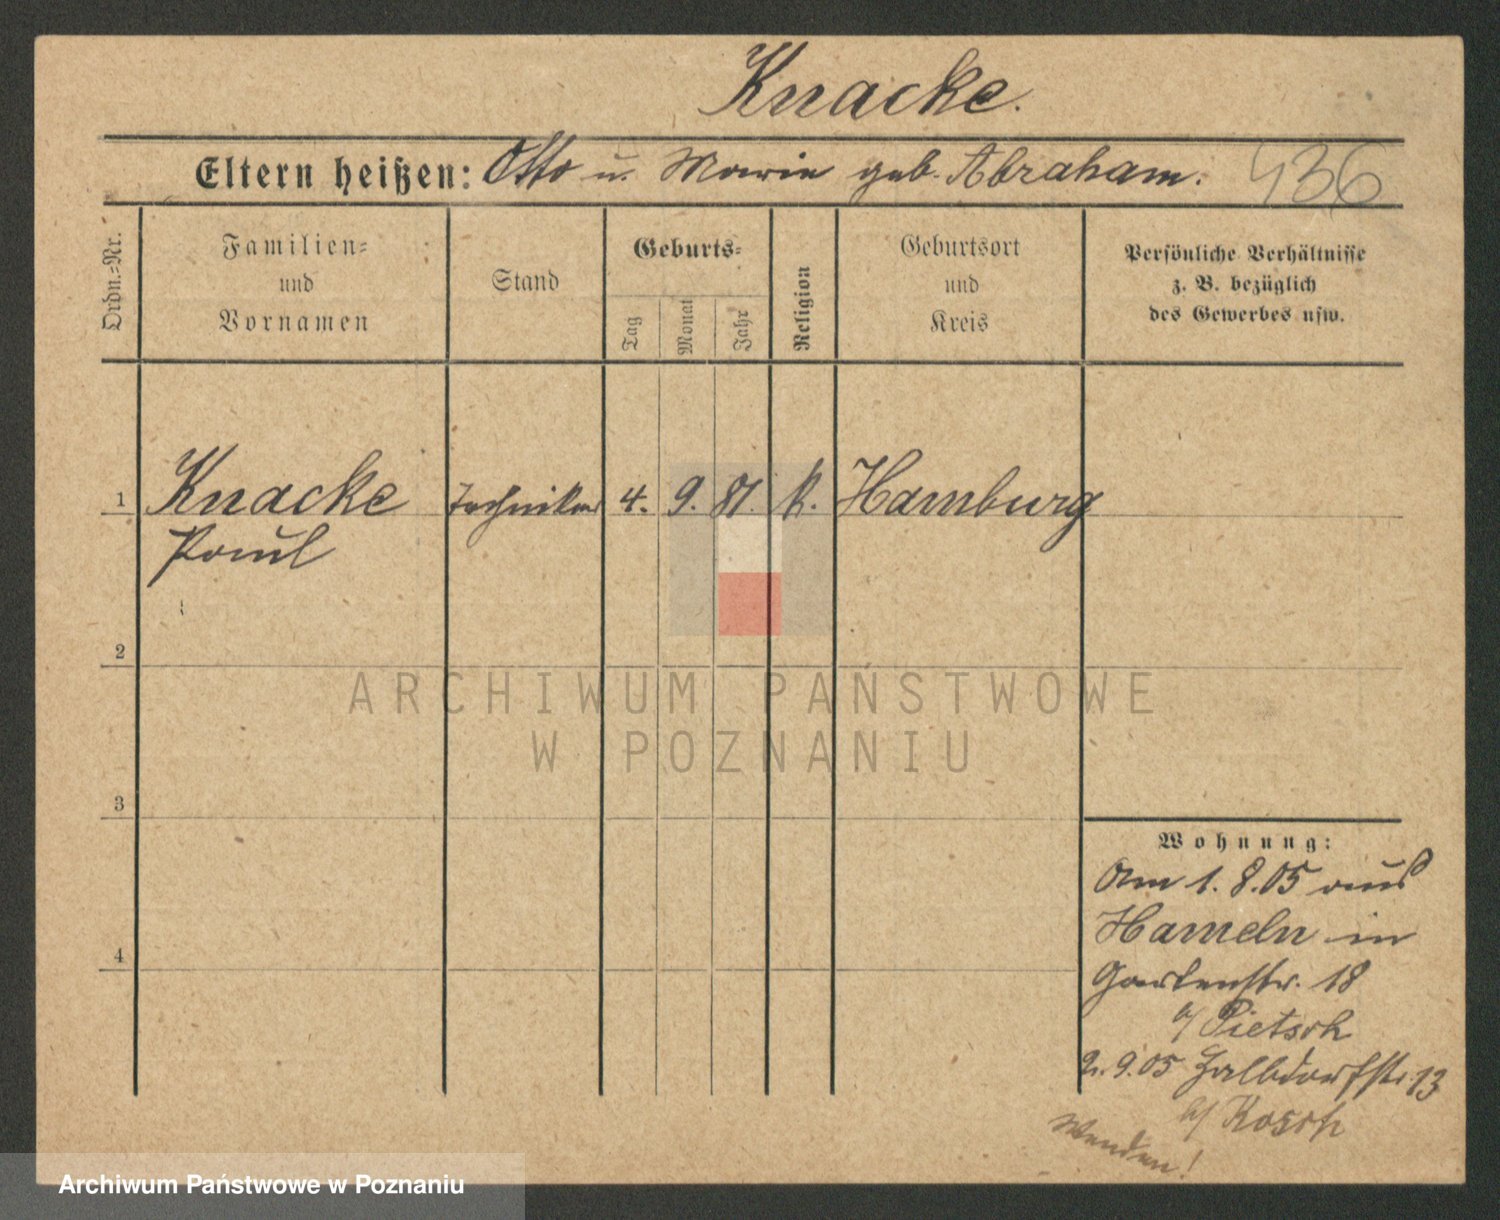 Knacke.
Eltern heißen: Otto u. Marie geb. Abraham. 436
Ordn.=Nr.
Familien=
und
Vornamen
Stand
Geburts=
Tag
Monat
Jahr
Religion
Geburtsort
und
Kreis
Persönliche Verhältnisse
z. B. bezüglich
des Gewerbes usw.
1 Knacke Techniker 4. 9. 81. k. Hamburg
Paul
2
3
4
Wohnung:
Am 1. 8. 05 aus
Hameln in
Gartenstr. 18
b/ Pietsch
2. 9. 05 Halbdorfstr. 13
b/ Kosch
Wenden!
ARCHIWUM PAŃSTWOWE
W POZNANIU
Archiwum Państwowe w Poznaniu